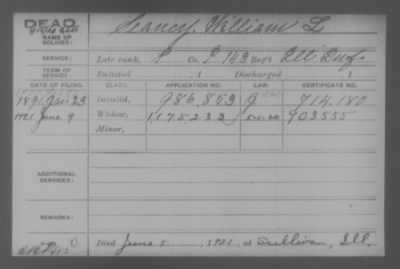 DEAD
NAME OF SOLDIER: Seaney, William L
SERVICE: Late rank, P Co. I 143 Reg't Ill Inf.
TERM OF SERVICE: Enlisted , 1 Discharged , 1
DATE OF FILING. CLASS. APPLICATION NO. LAW. CERTIFICATE NO.
1891 Jan 23 Invalid, 986,853 714,180
1921 June 9 Widow, 1175233 903555
Minor,
ADDITIONAL SERVICES:
REMARKS:
Died June 5, 1921, at Sullivan, Ill.